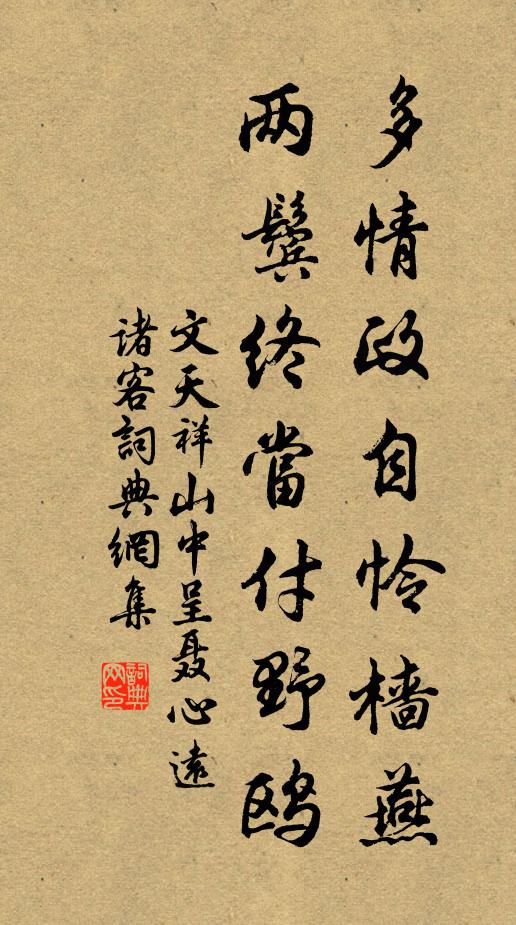 多情政自怜樯燕
两鬓终當付野鸥
文天祥山中呈聂心遠
诸客詞典網集
詞典网印